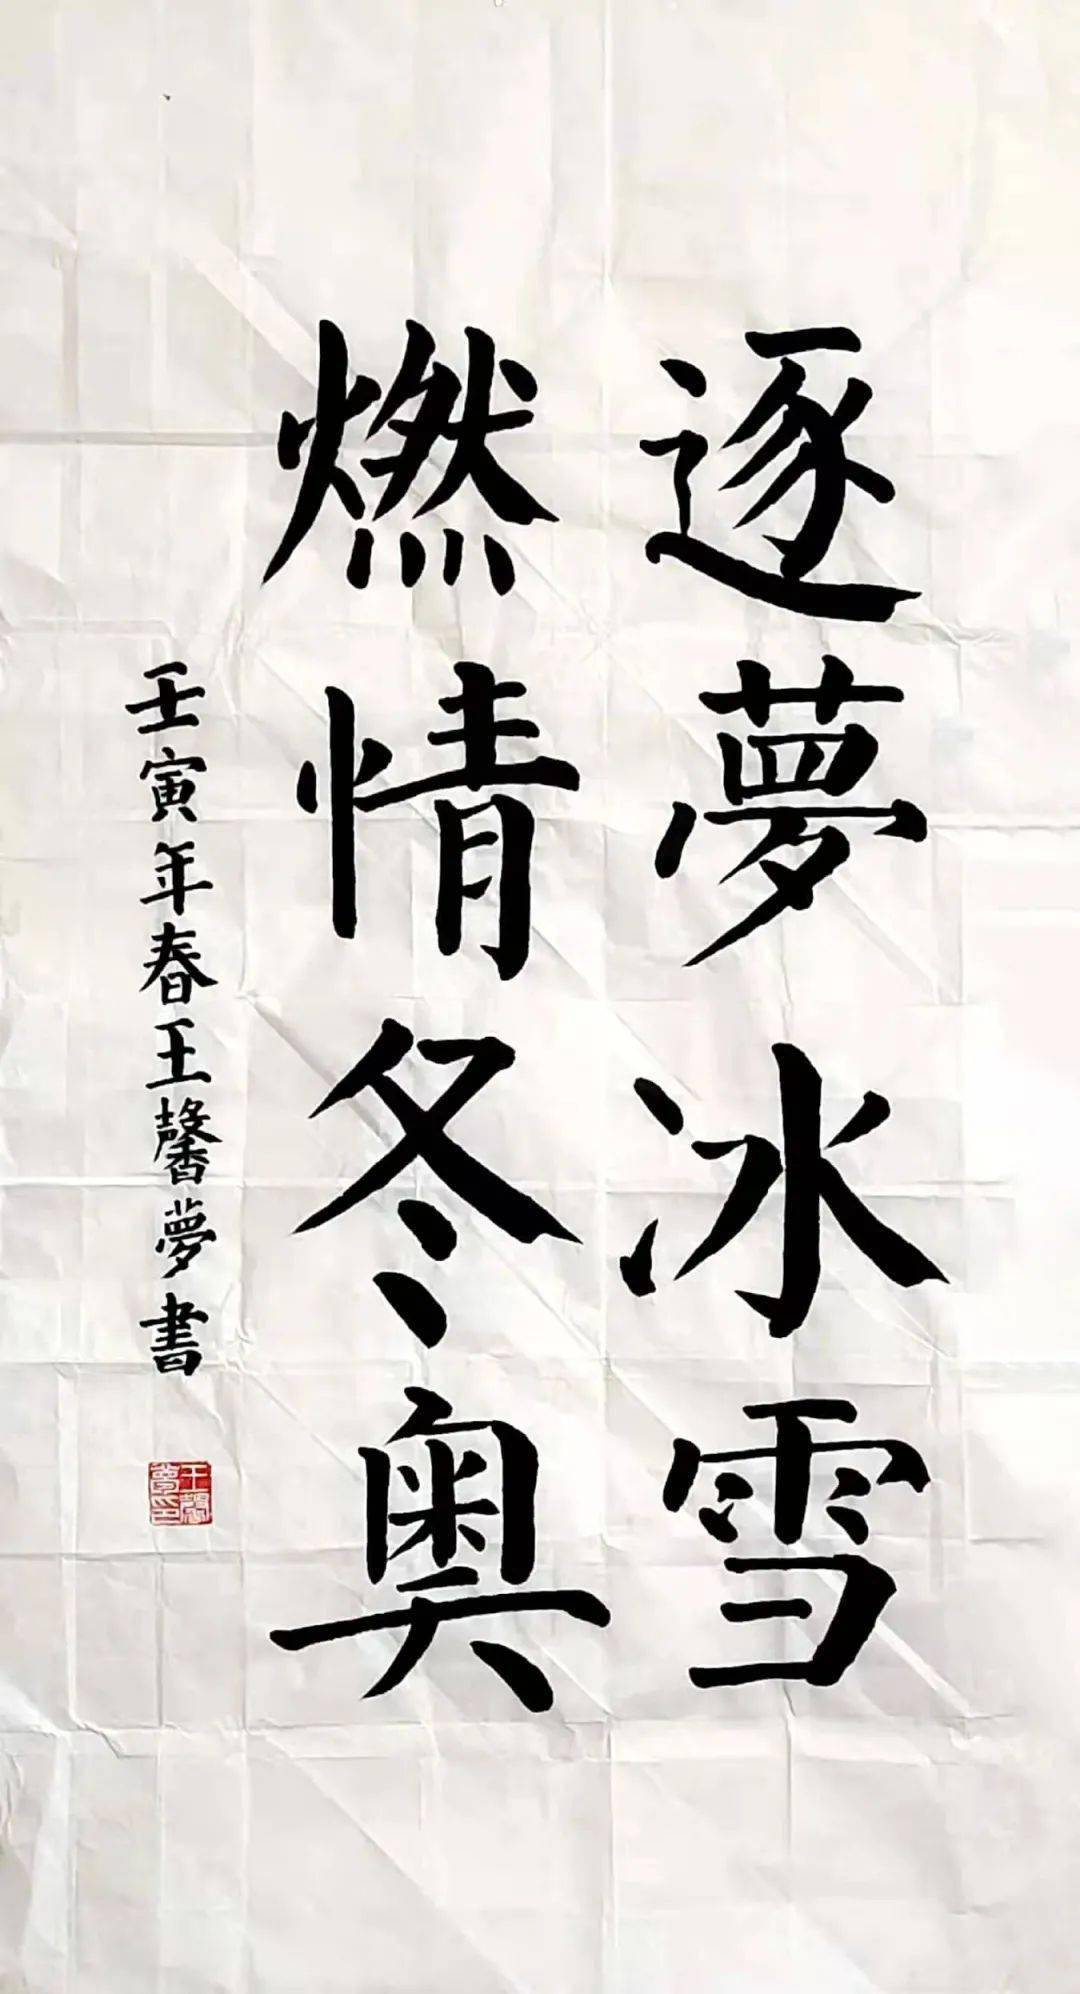 逐夢冰雪
燃情冬奥
壬寅年春王馨夢書
王馨夢印